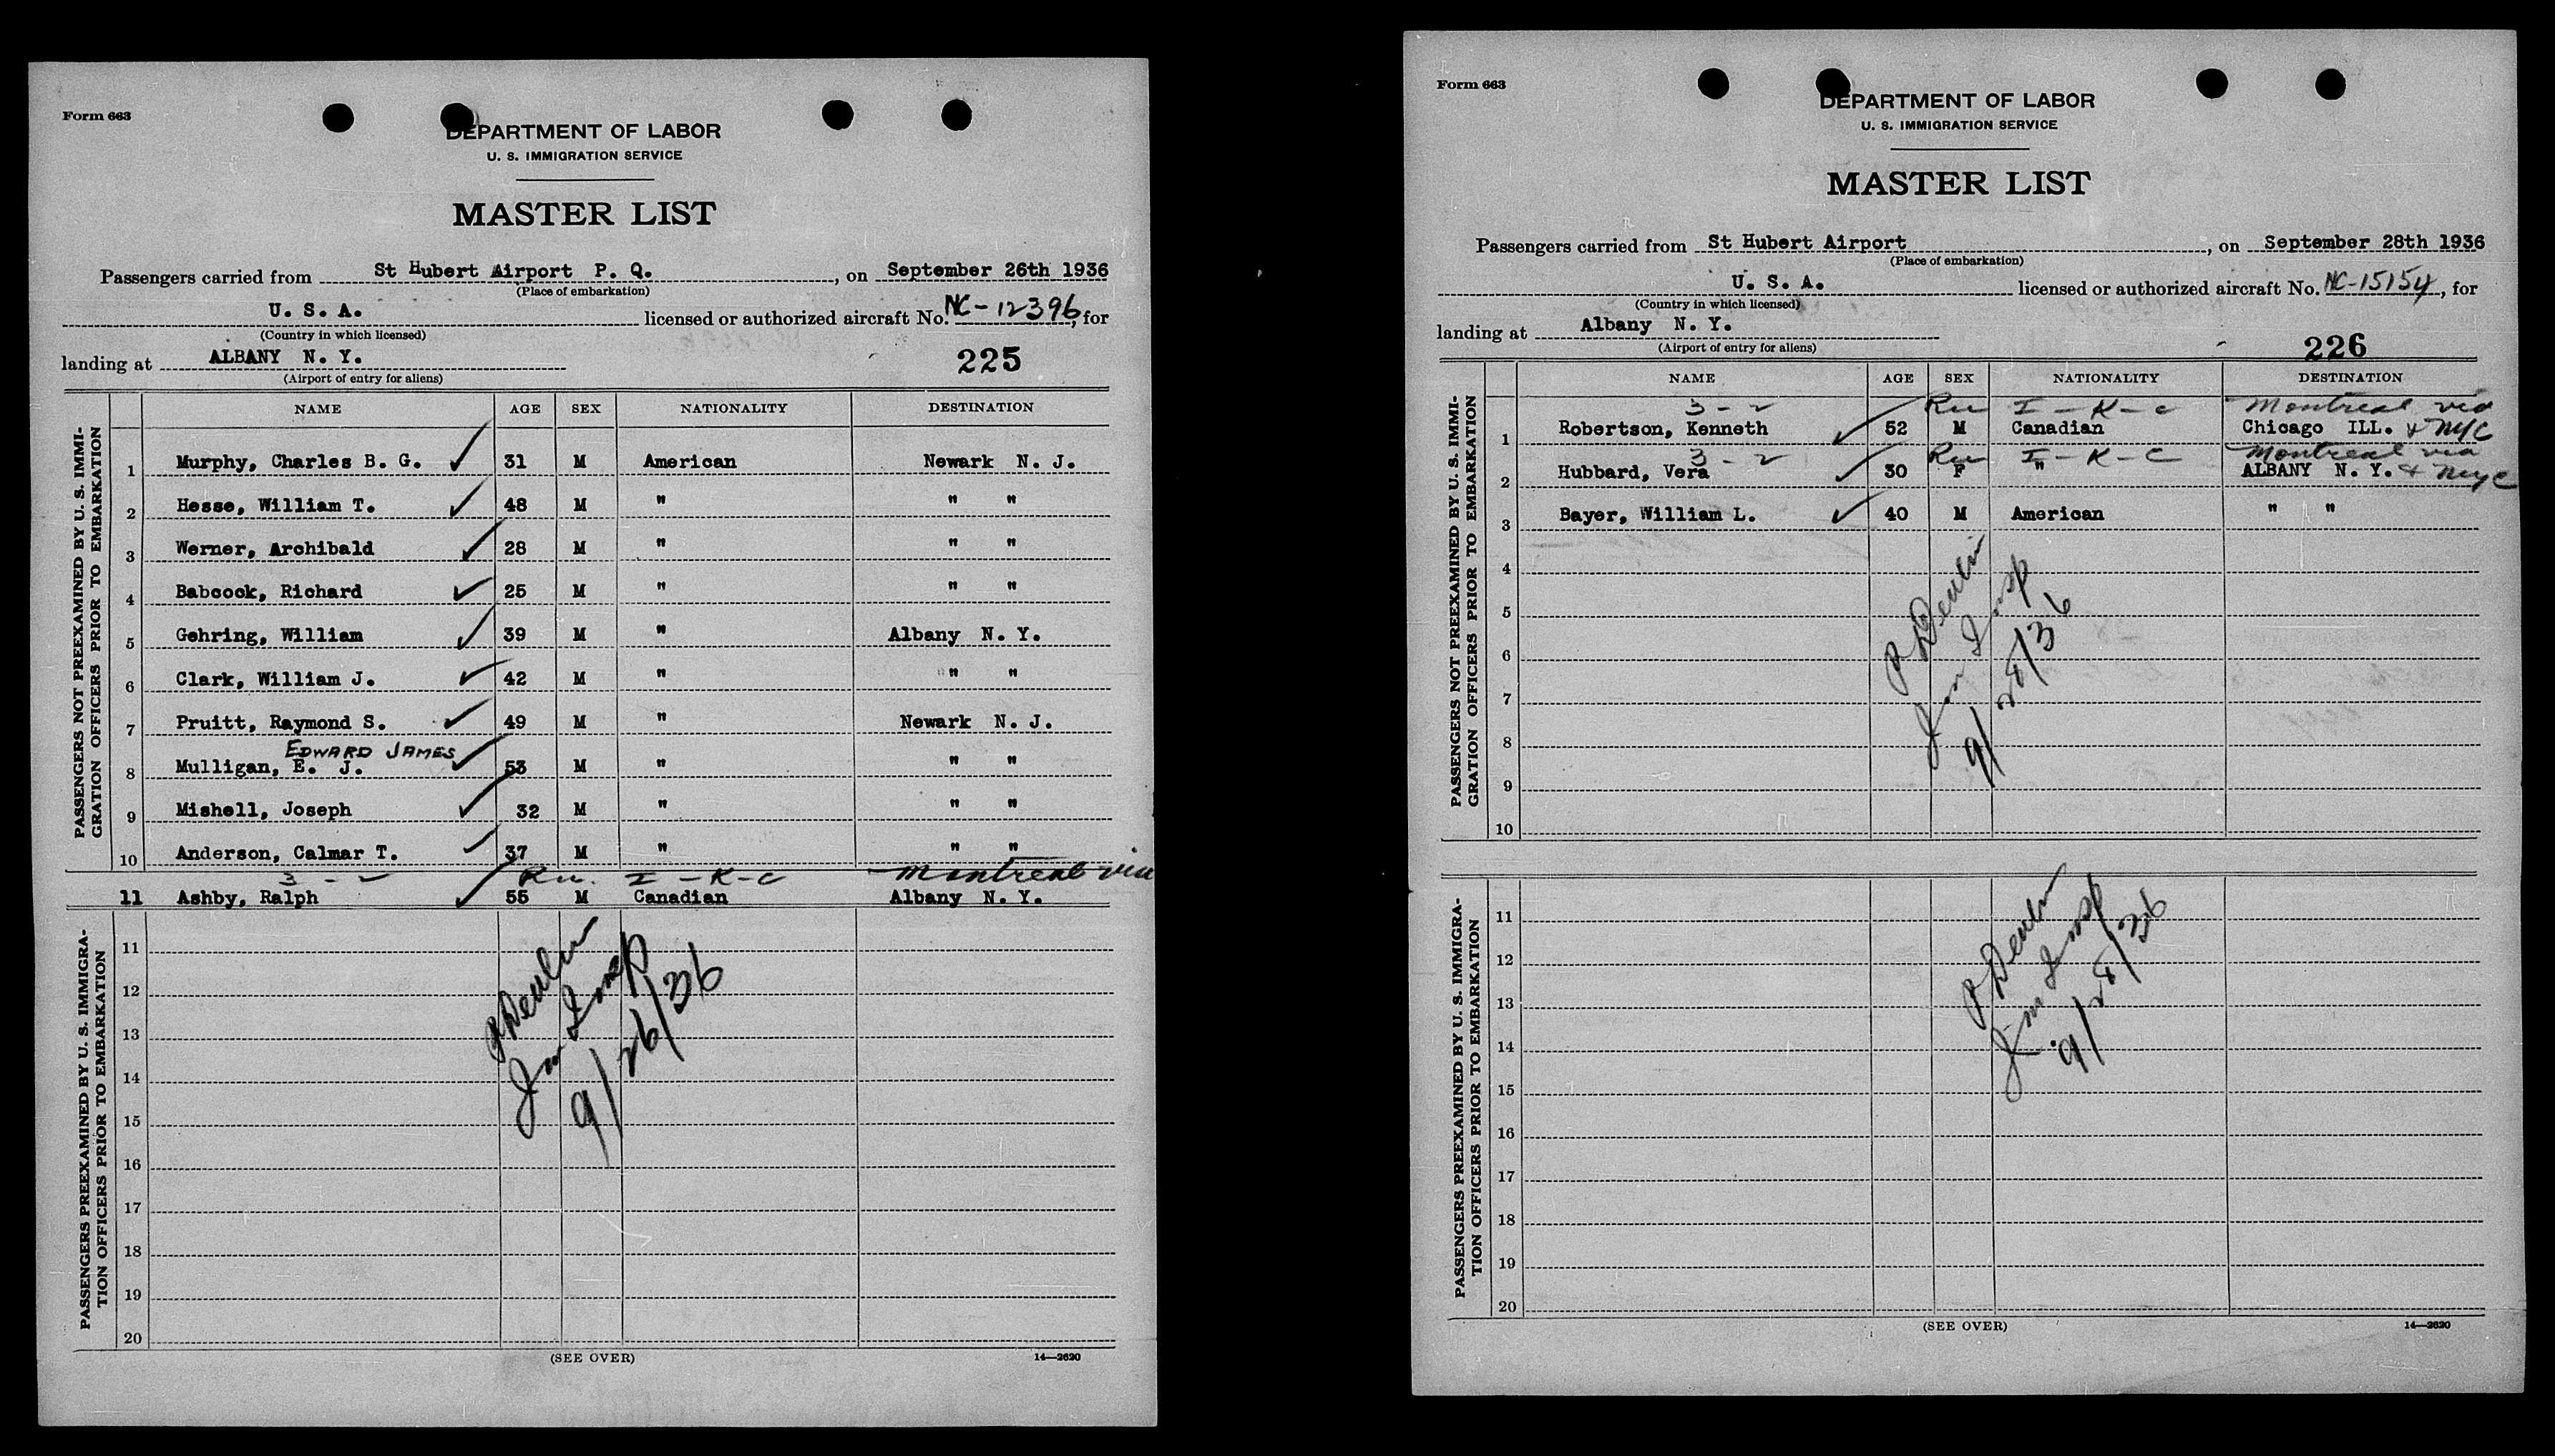 Form 663
DEPARTMENT OF LABOR
U. S. IMMIGRATION SERVICE
MASTER LIST
Passengers carried from St Hubert Airport P. Q., on September 26th 1936
(Place of embarkation)
U. S. A. licensed or authorized aircraft No. NC-12396, for
(Country in which licensed)
landing at ALBANY N. Y. 225
(Airport of entry for aliens)
NAME AGE SEX NATIONALITY DESTINATION
PASSENGERS NOT PREEXAMINED BY U. S. IMMI-
GRATION OFFICERS PRIOR TO EMBARKATION
1 Murphy, Charles B. G. 31 M American Newark N. J.
2 Hesse, William T. 48 M " " "
3 Werner, Archibald 28 M " " "
4 Babcock, Richard 25 M " " "
5 Gehring, William 39 M " Albany N. Y.
6 Clark, William J. 42 M " " "
7 Pruitt, Raymond S. 49 M " Newark N. J.
EDWARD JAMES
8 Mulligan, E. J. 53 M " " "
9 Mishell, Joseph 32 M " " "
10 Anderson, Calmar T. 37 M " " "
3 - 2 I - K - C Montreal via
11 Ashby, Ralph 55 M Canadian Albany N. Y.
PASSENGERS PREEXAMINED BY U. S. IMMIGRA-
TION OFFICERS PRIOR TO EMBARKATION
11
12
13
14
15
16
17
18
19
20
Imm Insp
9/26/36
(SEE OVER) 14—2620
Form 663
DEPARTMENT OF LABOR
U. S. IMMIGRATION SERVICE
MASTER LIST
Passengers carried from St Hubert Airport, on September 28th 1936
(Place of embarkation)
U. S. A. licensed or authorized aircraft No. NC-15154, for
(Country in which licensed)
landing at Albany N. Y. 226
(Airport of entry for aliens)
NAME AGE SEX NATIONALITY DESTINATION
PASSENGERS NOT PREEXAMINED BY U. S. IMMI-
GRATION OFFICERS PRIOR TO EMBARKATION
3 - 2 I - K - C Montreal via
1 Robertson, Kenneth 52 M Canadian Chicago ILL. & NYC
3 - 2 I - K - C Montreal via
2 Hubbard, Vera 30 F " ALBANY N. Y. & NYC
3 Bayer, William L. 40 M American " "
4
5
6
7
8
9
10
Imm Insp
9/28/36
PASSENGERS PREEXAMINED BY U. S. IMMIGRA-
TION OFFICERS PRIOR TO EMBARKATION
11
12
13
14
15
16
17
18
19
20
Imm Insp
9/28/36
(SEE OVER) 14—2620